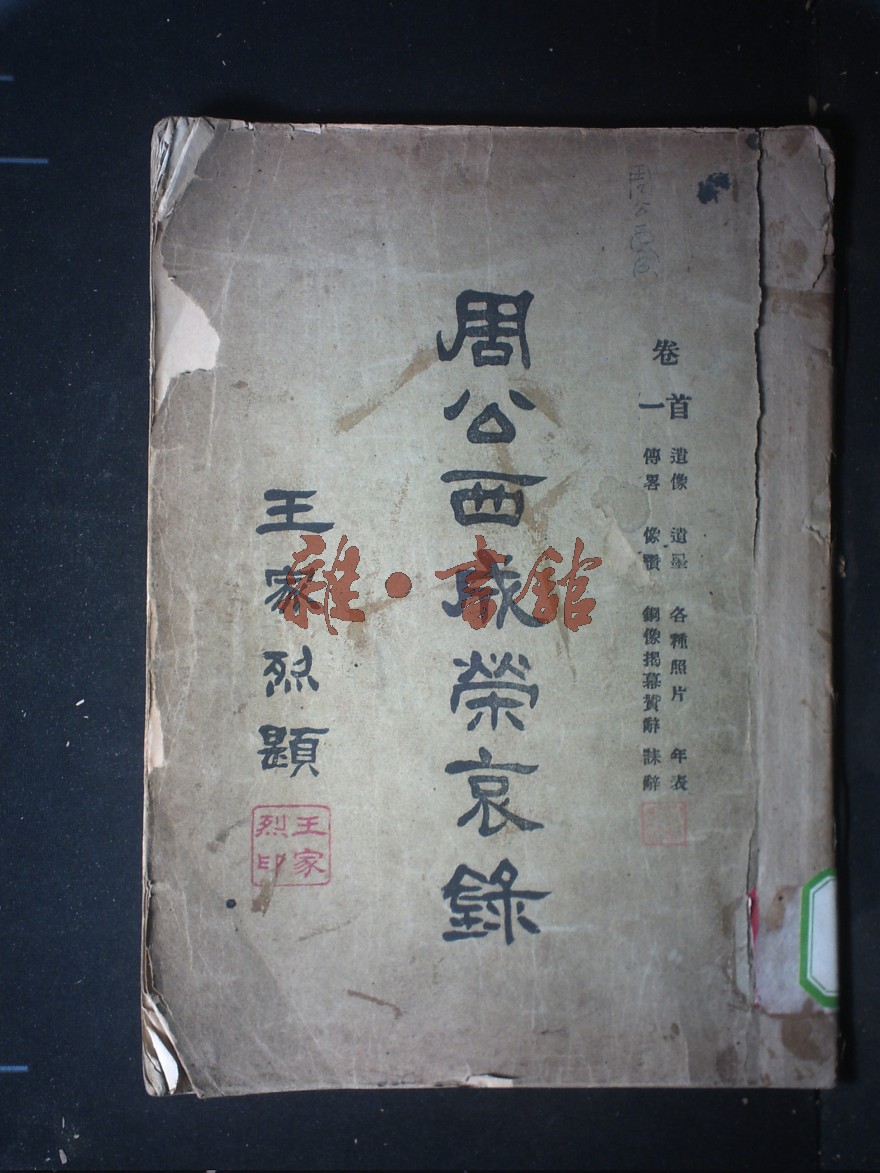 卷首 遺像 遺墨 各種照片 年表
一 傳畧 像贊 銅像揭幕贊辭 誄辭
周公西成榮哀錄
王家烈題
王家烈印
雜·書館